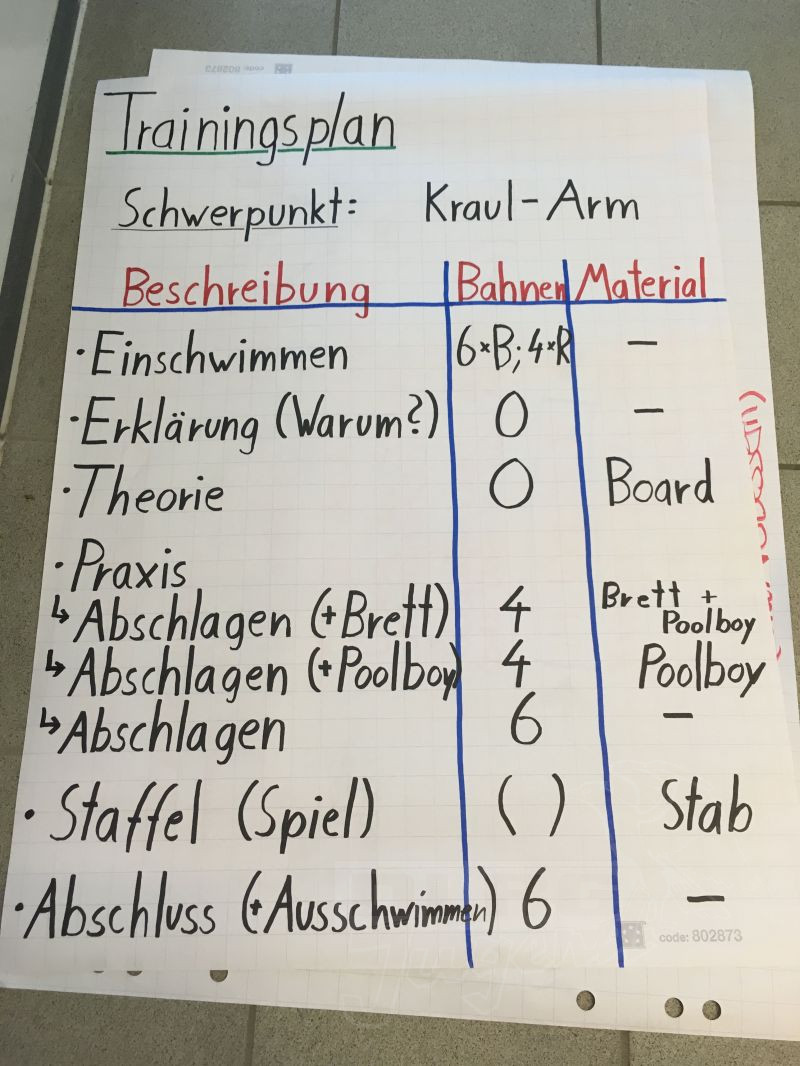 code: 802873
Trainingsplan
Schwerpunkt: Kraul-Arm
Beschreibung Bahnen Material
· Einschwimmen 6×B; 4×R –
· Erklärung (Warum?) 0 –
· Theorie 0 Board
· Praxis
↳ Abschlagen (+Brett) 4 Brett + Poolboy
↳ Abschlagen (+Poolboy) 4 Poolboy
↳ Abschlagen 6 –
· Staffel (Spiel) ( ) Stab
· Abschluss (+Ausschwimmen) 6 –
code: 802873